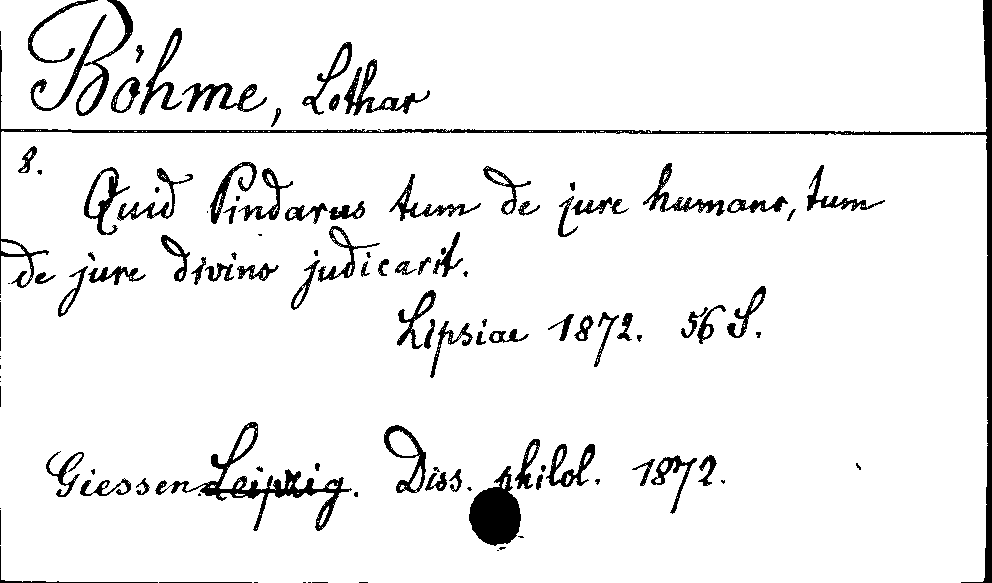 Böhme, Lothar
8.
Quid Pindarus tum de jure humano, tum
de jure divino judicarit.
Lipsiae 1872. 56 S.
Giessen Leipzig. Diss. philol. 1872.